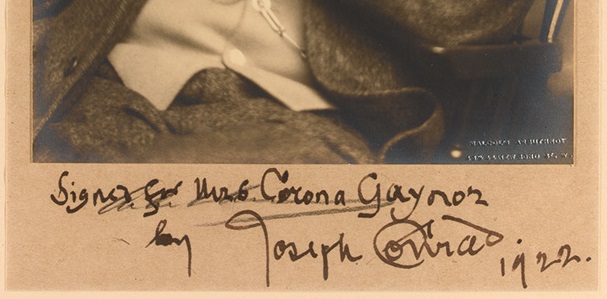 MALCOLM ARBUTHNOT
Signed for Mrs. Corona Gaynor
by Joseph Conrad 1922.